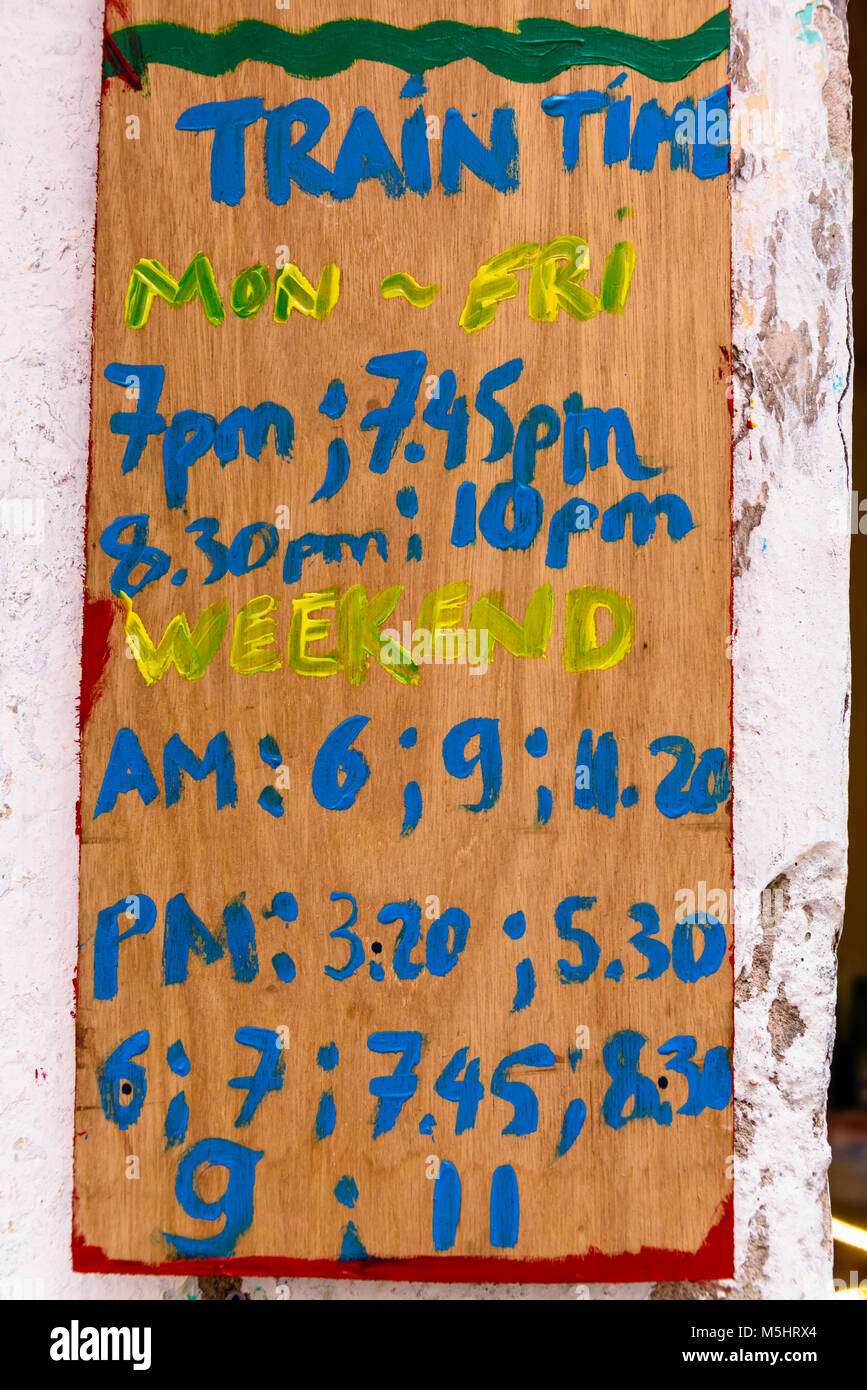 TRAIN TIME
MON ~ FRI
7pm ; 7.45pm
8.30pm ; 10pm
WEEKEND
AM : 6 ; 9 ; 11.20
PM : 3.20 ; 5.30
6 ; 7 ; 7.45 ; 8.30
9 ; 11
alamy
Image ID: M5HRX4
www.alamy.com